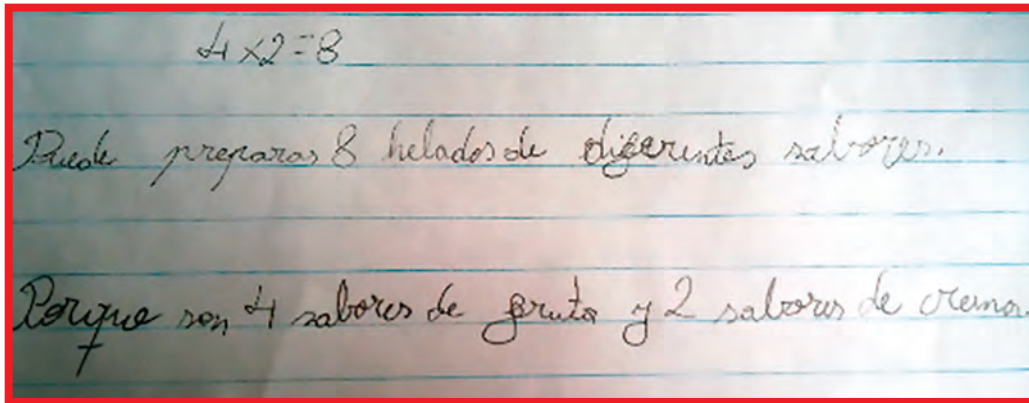 4×2=8
Puede preparar 8 helados de diferentes sabores.
Porque son 4 sabores de fruta y 2 sabores de crema.